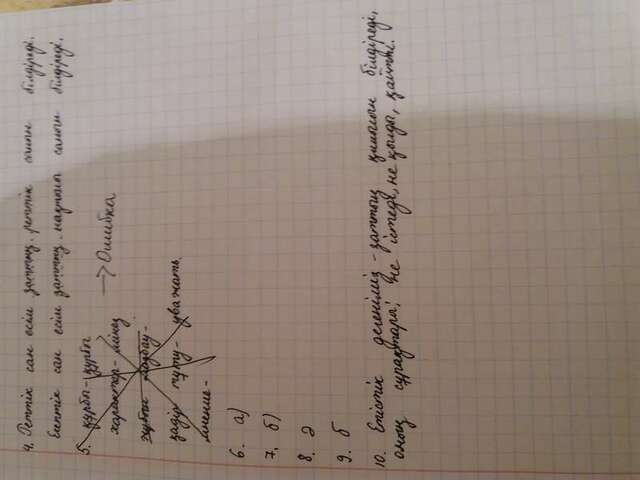 4. Реттік сан есім заттың реттік санын білдіреді.
Есептік сан есім заттың нақтылы санын білдіреді.
5. құрбы - құрбы
характер - мінез → Ошибка
қадір тұту - уважать
мнение -
6. а)
7. б)
8. Ә
9. б
10. Етістік дегеніміз - заттың қимылын білдіреді,
оның сұрақтары: не істеді, не қылды, қайтті.